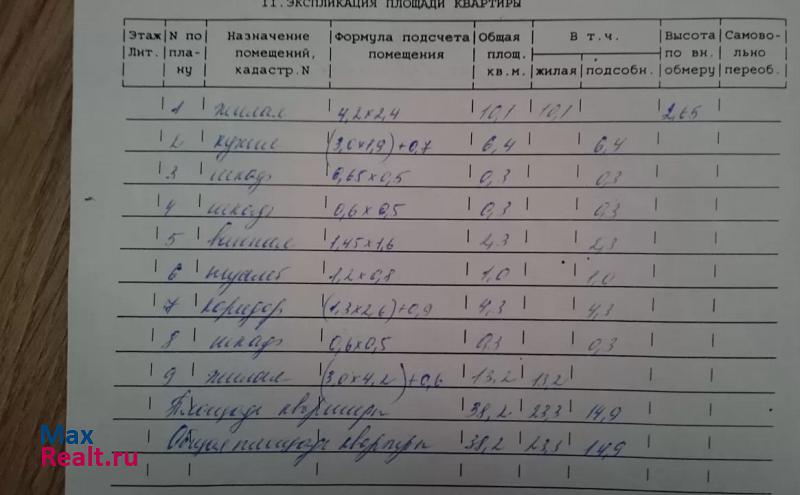 II. ЭКСПЛИКАЦИЯ ПЛОЩАДИ КВАРТИРЫ
Этаж Лит. | N по пла- ну | Назначение помещений, кадастр.N | Формула подсчета помещения | Общая площ. кв.м. | В т.ч. жилая | подсобн. | Высота по вн. обмеру | Самово- льно переоб.
1 | жилая | 4,2x2,4 | 10,1 | 10,1 | | 2,65
2 | кухня | (3,0x1,9)+0,7 | 6,4 | | 6,4
3 | шкаф | 0,65x0,5 | 0,3 | | 0,3
4 | шкаф | 0,6x0,5 | 0,3 | | 0,3
5 | ванная | 1,45x1,6 | 2,3 | | 2,3
6 | туалет | 1,2x0,8 | 1,0 | | 1,0
7 | коридор | (1,3x2,6)+0,9 | 4,3 | | 4,3
8 | шкаф | 0,6x0,5 | 0,3 | | 0,3
9 | жилая | (3,0x4,2)+0,6 | 13,2 | 13,2
Площадь квартиры | 38,2 | 23,3 | 14,9
Общая площадь квартиры | 38,2 | 23,3 | 14,9
Max
Realt.ru